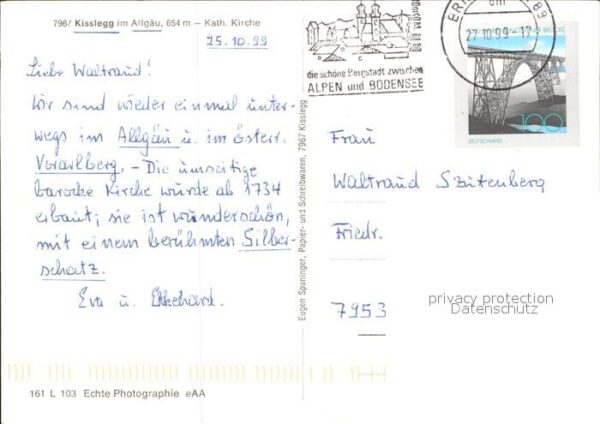 7967 Kisslegg im Allgäu, 654 m — Kath. Kirche
25.10.99
Liebe Waltraud!
Wir sind wieder einmal unter-
wegs im Allgäu u. im österr.
Vorarlberg. - Die umseitige
barocke Kirche wurde ab 1734
erbaut; sie ist wunderschön,
mit einem berühmten Silber-
schatz.
Eva u. Ekkehard.
161 L 103 Echte Photographie eAA
Eugen Spaninger, Papier- und Schreibwaren, 7967 Kisslegg
die schöne Bergstadt zwischen
ALPEN und BODENSEE
27.10.99-17
DEUTSCHLAND
100
Frau
Waltraud Szitenberg
Friedr.
7953
privacy protection
Datenschutz